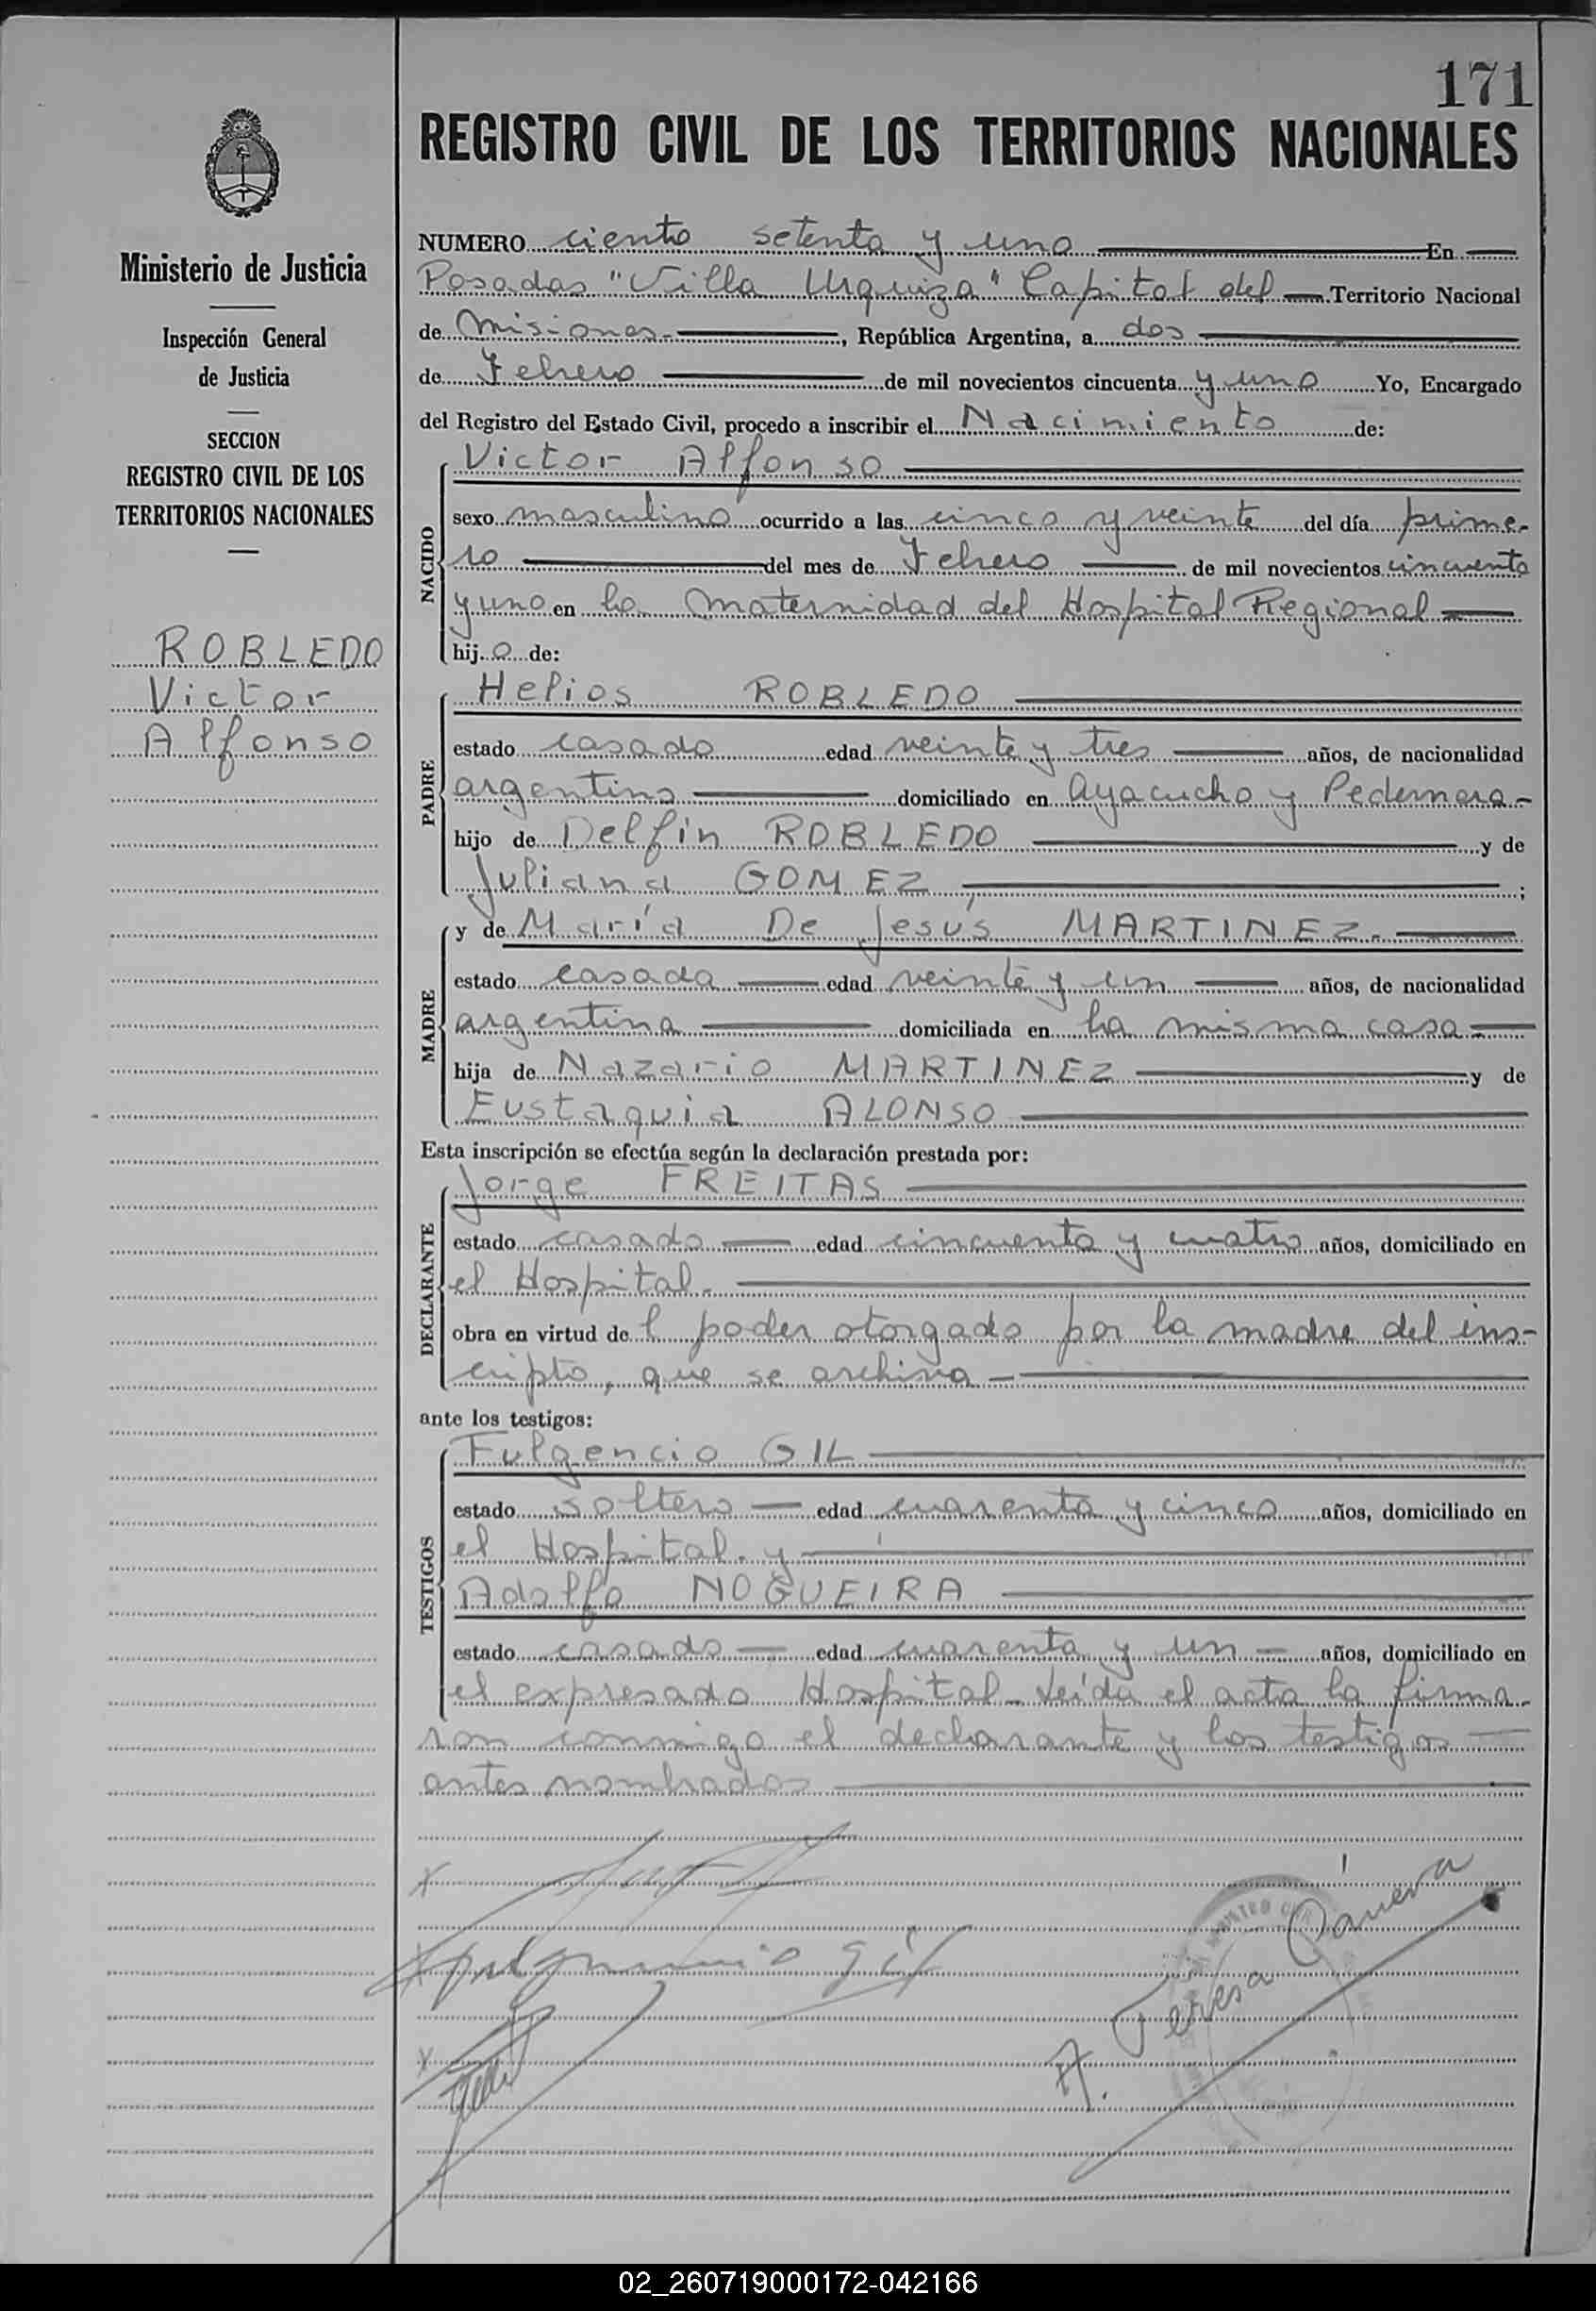 171
REGISTRO CIVIL DE LOS TERRITORIOS NACIONALES
Ministerio de Justicia
Inspección General
de Justicia
SECCION
REGISTRO CIVIL DE LOS
TERRITORIOS NACIONALES
ROBLEDO
Victor
Alfonso
NUMERO ciento setenta y uno En
Posadas "Villa Urquiza" Capital del Territorio Nacional
de Misiones.-, República Argentina, a dos
de Febrero de mil novecientos cincuenta y uno Yo, Encargado
del Registro del Estado Civil, procedo a inscribir el Nacimiento de:
NACIDO
Victor Alfonso
sexo masculino ocurrido a las cinco y veinte del día prime-
ro del mes de Febrero de mil novecientos cincuenta
y uno en la Maternidad del Hospital Regional
hij o de:
PADRE
Helios ROBLEDO
estado casado edad veinte y tres años, de nacionalidad
argentino domiciliado en Ayacucho y Pedernera-
hijo de Delfin ROBLEDO y de
Juliana GOMEZ ;
MADRE
y de María De Jesús MARTINEZ.-
estado casada edad veinte y un años, de nacionalidad
argentina domiciliada en la misma casa
hija de Nazario MARTINEZ y de
Eustaquia ALONSO
Esta inscripción se efectúa según la declaración prestada por:
DECLARANTE
Jorge FREITAS
estado casado edad cincuenta y cuatro años, domiciliado en
el Hospital.
obra en virtud de l poder otorgado por la madre del ins-
cripto, que se archiva
ante los testigos:
TESTIGOS
Fulgencio GIL
estado soltero edad cuarenta y cinco años, domiciliado en
el Hospital. y
Adolfo NOGUEIRA
estado casado edad cuarenta y un años, domiciliado en
el expresado Hospital. Leída el acta la firma-
ron conmigo el declarante y los testigos
antes nombrados
Fulgencio Gil
A. Teresa
02_260719000172-042166